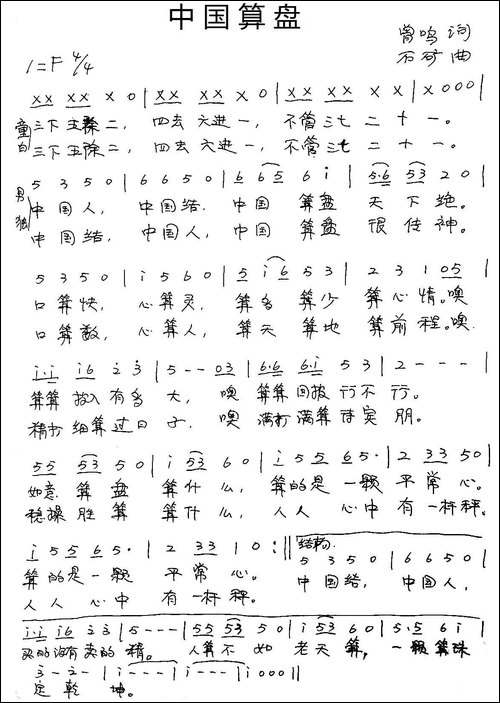 中国算盘
曾鸣 词
1=F 4/4
石矿 曲
XX XX X 0 | XX XX X 0 | XX XX X X | X 0 0 0 |
童 三下五除二， 四去六进一， 不管三七二十一。
白 三下五除二， 四去六进一， 不管三七二十一。
5 3 5 0 | 6 6 5 0 | 6 6 5 6 i | 5·6 53 2 0 |
男 中国人， 中国结， 中国算盘天下绝。
独 中国结， 中国人， 中国算盘很传神。
5 3 5 0 | i 5 6 0 | 5 i 6 5 3 | 2 3 1 05 |
口算快， 心算灵， 算多算少算心情。噢
口算数， 心算人， 算天算地算前程。噢
i·i i6 2 3 | 5 - - 03 | 6·6 6·i 5 3 | 2 - - - |
算算投入有多大， 噢算算回报行不行。
精打细算过日子， 噢满打满算待宾朋。
55 53 5 0 | i 53 6 0 | i 55 65· | 2 33 5 0 |
如意算盘算什么， 算的是一颗平常心。
稳操胜算算什么， 人人心中有一杆秤。
i 5 5 6 5· | 2 33 1 0 :|| 结构 5 3 5 0 | 6 6 5 0 |
算的是一颗平常心。 中国结， 中国人，
人人心中有一杆秤。
i·i i6 2 3 | 5 - - - | 55 53 5 0 | i 53 6 0 | 5·5 6 i |
买的没有卖的精。 人算不如老天算， 一颗算珠
3 - 2 - | i - - - | i - - - | i 0 0 0 ||
定乾坤。